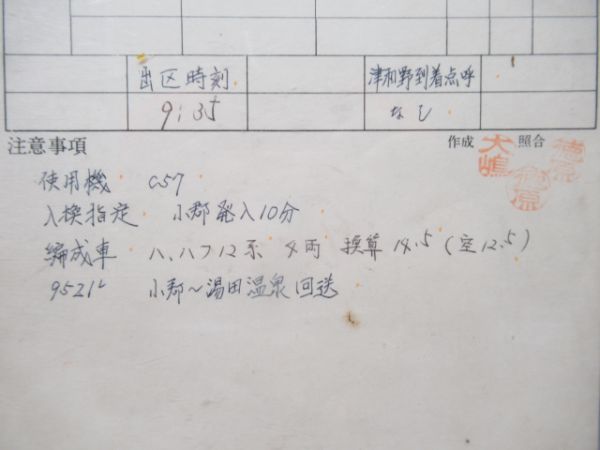 出区時刻 津和野到着点呼
9:35 なし
注意事項 作成 大嶋 照合
使用機 C57
入換指定 小郡発入10分
編成車 ハ、ハフ12系 4両 換算14.5(空12.5)
9521レ 小郡~湯田温泉回送